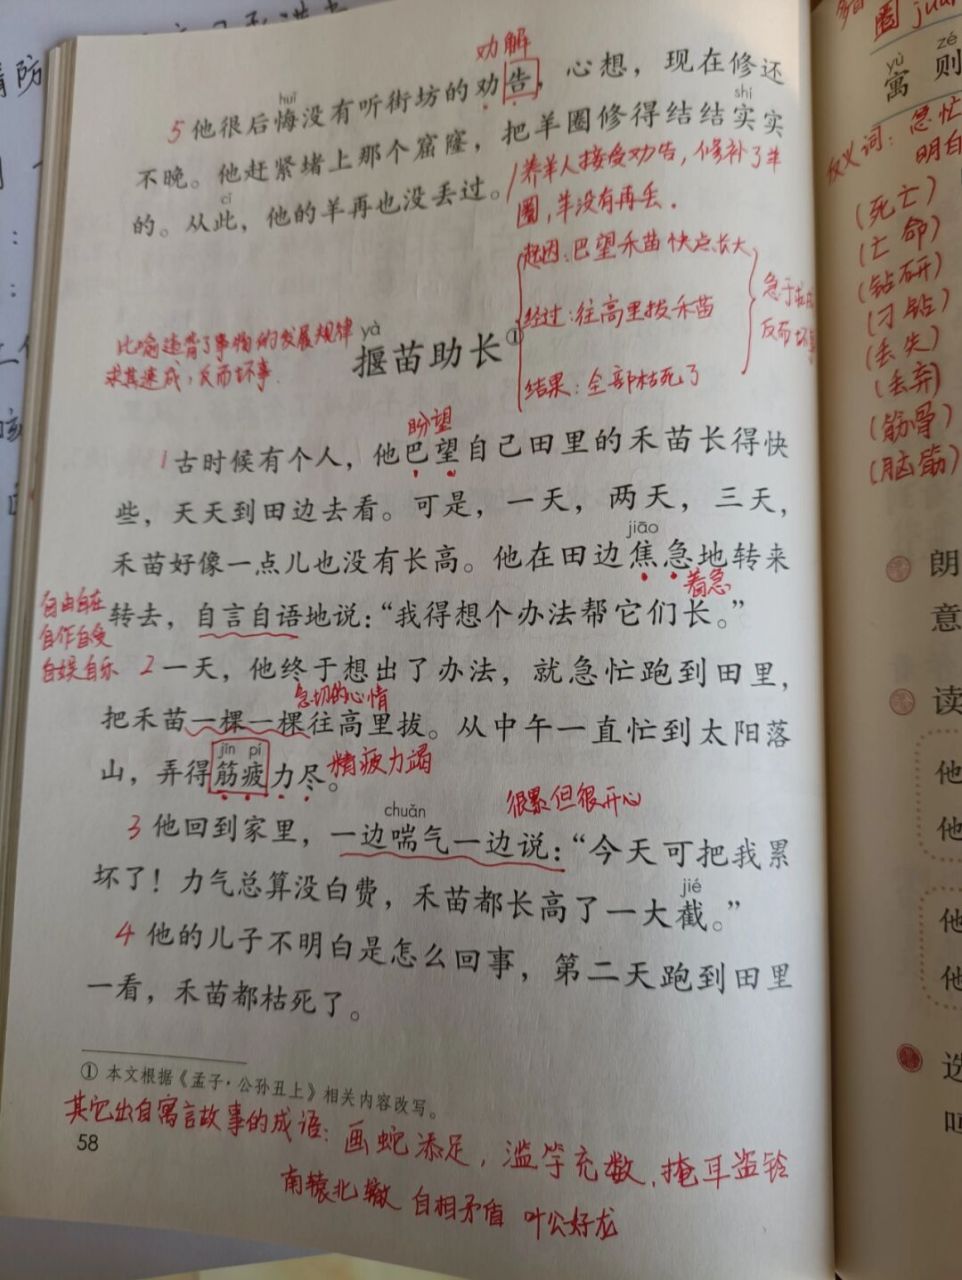 劝解
huǐ
5 他很后悔没有听街坊的劝告，心想，现在修还
不晚。他赶紧堵上那个窟窿，把羊圈修得结结实实
shi
cǐ
的。从此，他的羊再也没丢过。
养羊人接受劝告，修补了羊
圈，羊没有再丢。
起因：巴望禾苗快点长大
经过：往高里拔禾苗
结果：全部枯死了
急于
反而坏事
比喻违背了事物的发展规律
求其速成，反而坏事
yà
揠苗助长①
盼望
1 古时候有个人，他巴望自己田里的禾苗长得快
些，天天到田边去看。可是，一天，两天，三天，
jiāo
禾苗好像一点儿也没有长高。他在田边焦急地转来
着急
转去，自言自语地说：“我得想个办法帮它们长。”
自由自在
自作自受
自娱自乐
2 一天，他终于想出了办法，就急忙跑到田里，
急切的心情
把禾苗一棵一棵往高里拔。从中午一直忙到太阳落
jīn pí
山，弄得筋疲力尽。
精疲力竭
很累但很开心
chuǎn
3 他回到家里，一边喘气一边说：“今天可把我累
jié
坏了！力气总算没白费，禾苗都长高了一大截。”
4 他的儿子不明白是怎么回事，第二天跑到田里
一看，禾苗都枯死了。
① 本文根据《孟子·公孙丑上》相关内容改写。
其它出自寓言故事的成语：画蛇添足，滥竽充数、掩耳盗铃
南辕北辙 自相矛盾 叶公好龙
58
圈 juàn
yù zé
寓 则
反义词：急忙
明白
（死亡）
（亡命）
（钻研）
（刁钻）
（丢失）
（丢弃）
（筋骨）
（脑筋）
朗
意
读
他
他
他
他
选